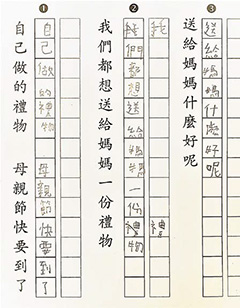 ①
自己做的禮物 母親節快要到了
自己做的禮物 母親節快要到了
②
我們都想送給媽媽一份禮物
們都想送給媽媽一份禮物
③
送給媽媽什麼好呢
送給媽媽什麼好呢